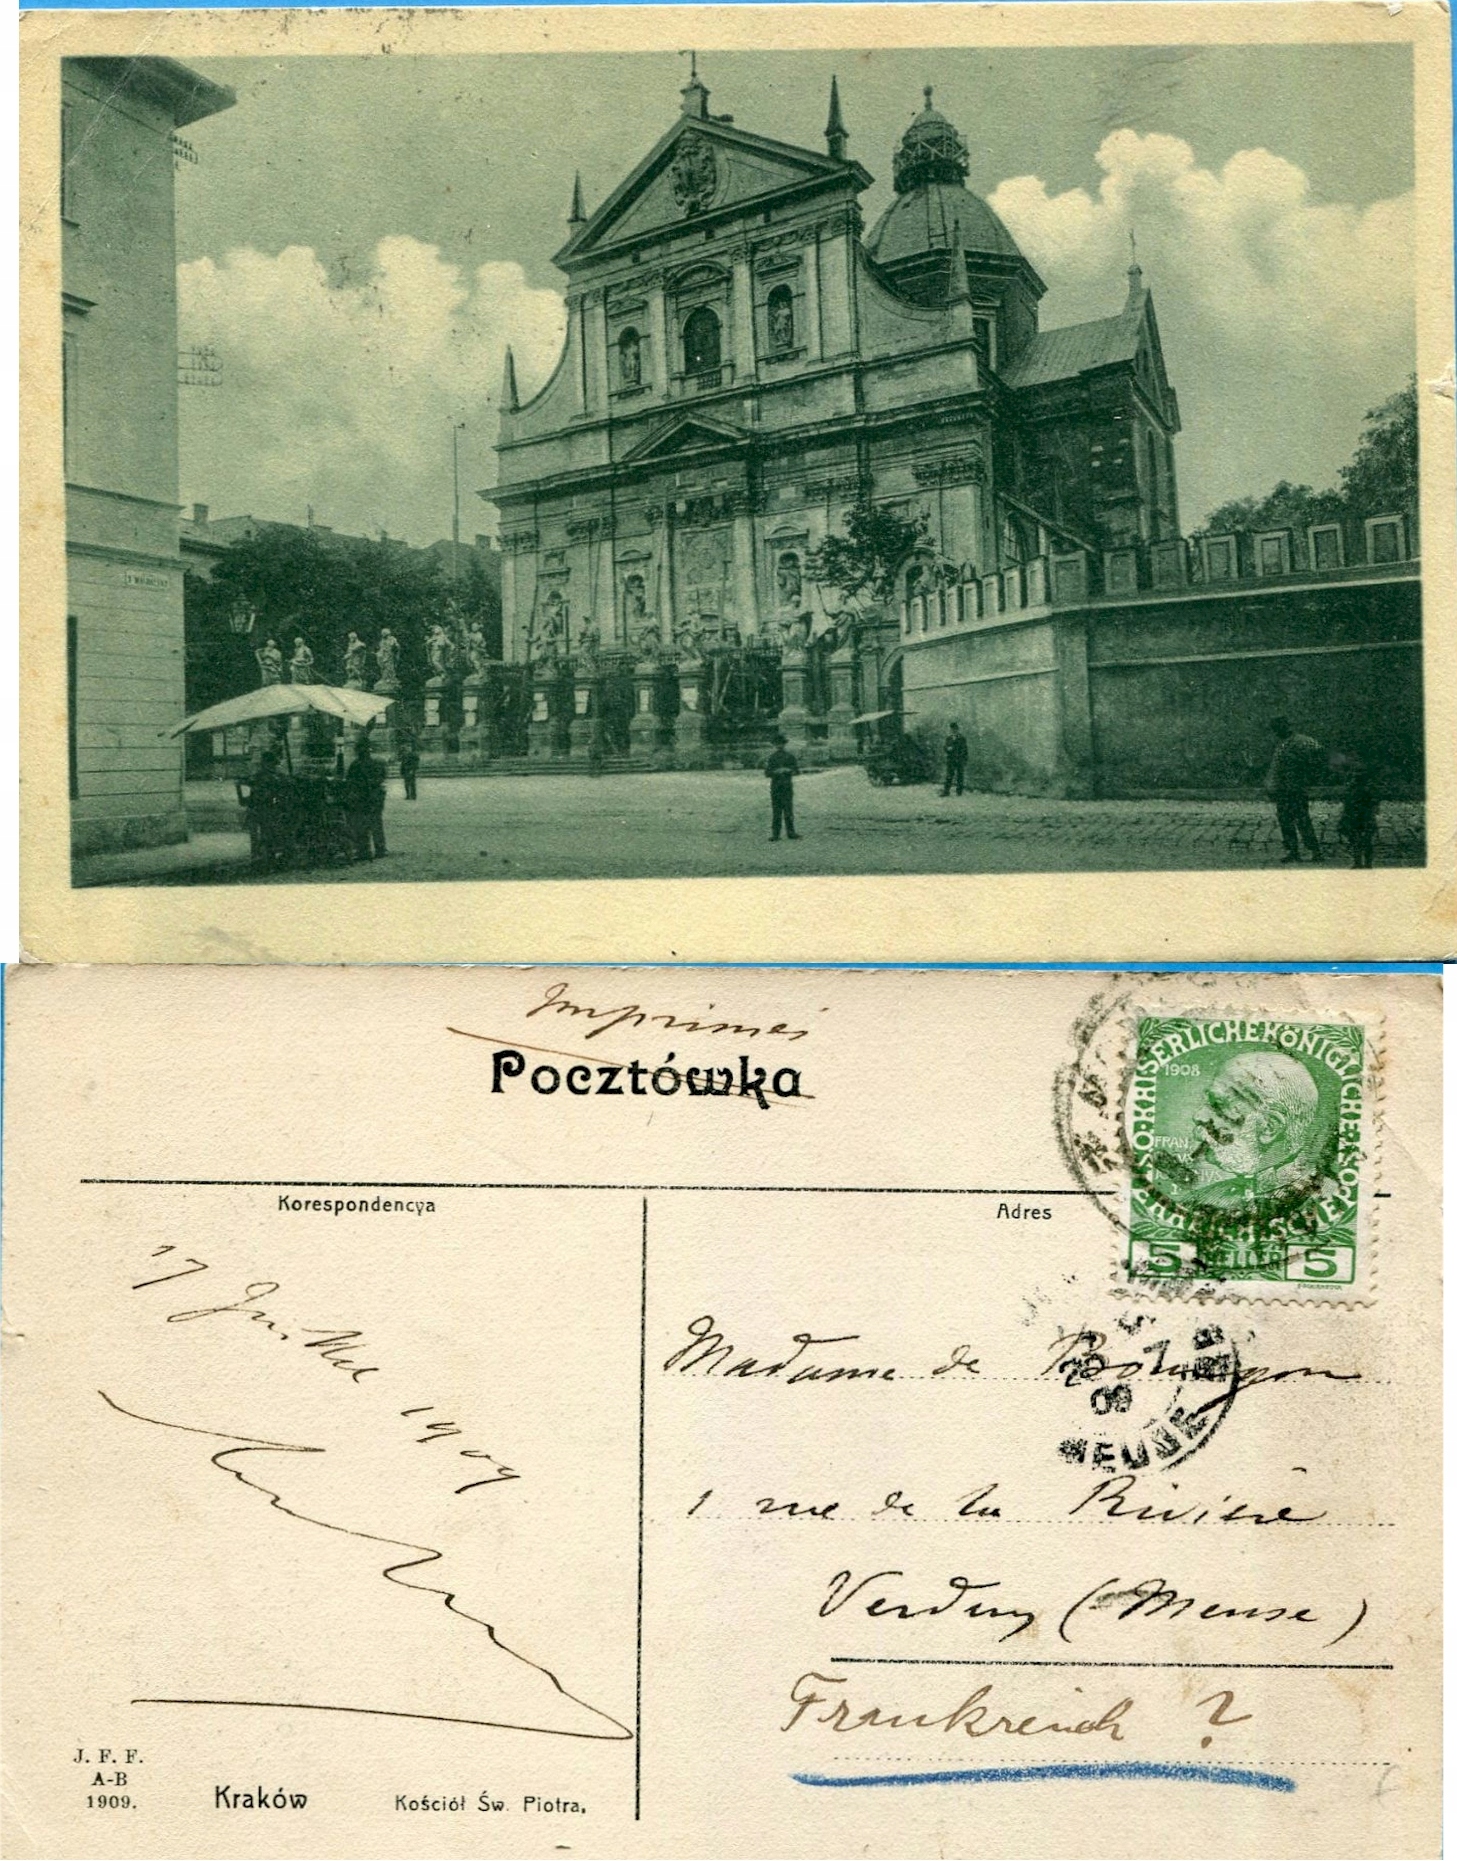 Imprimés
Pocztówka
KAISERLICHE KÖNIGLICHE
1908
5 HELLER 5
Korespondencya
Adres
17 Juillet
1909
Madame de
09
MEUSE
1 rue de la Rivière
Verdun (Meuse)
Frankreich ?
J. F. F.
A-B
1909.
Kraków
Kościół Św. Piotra.